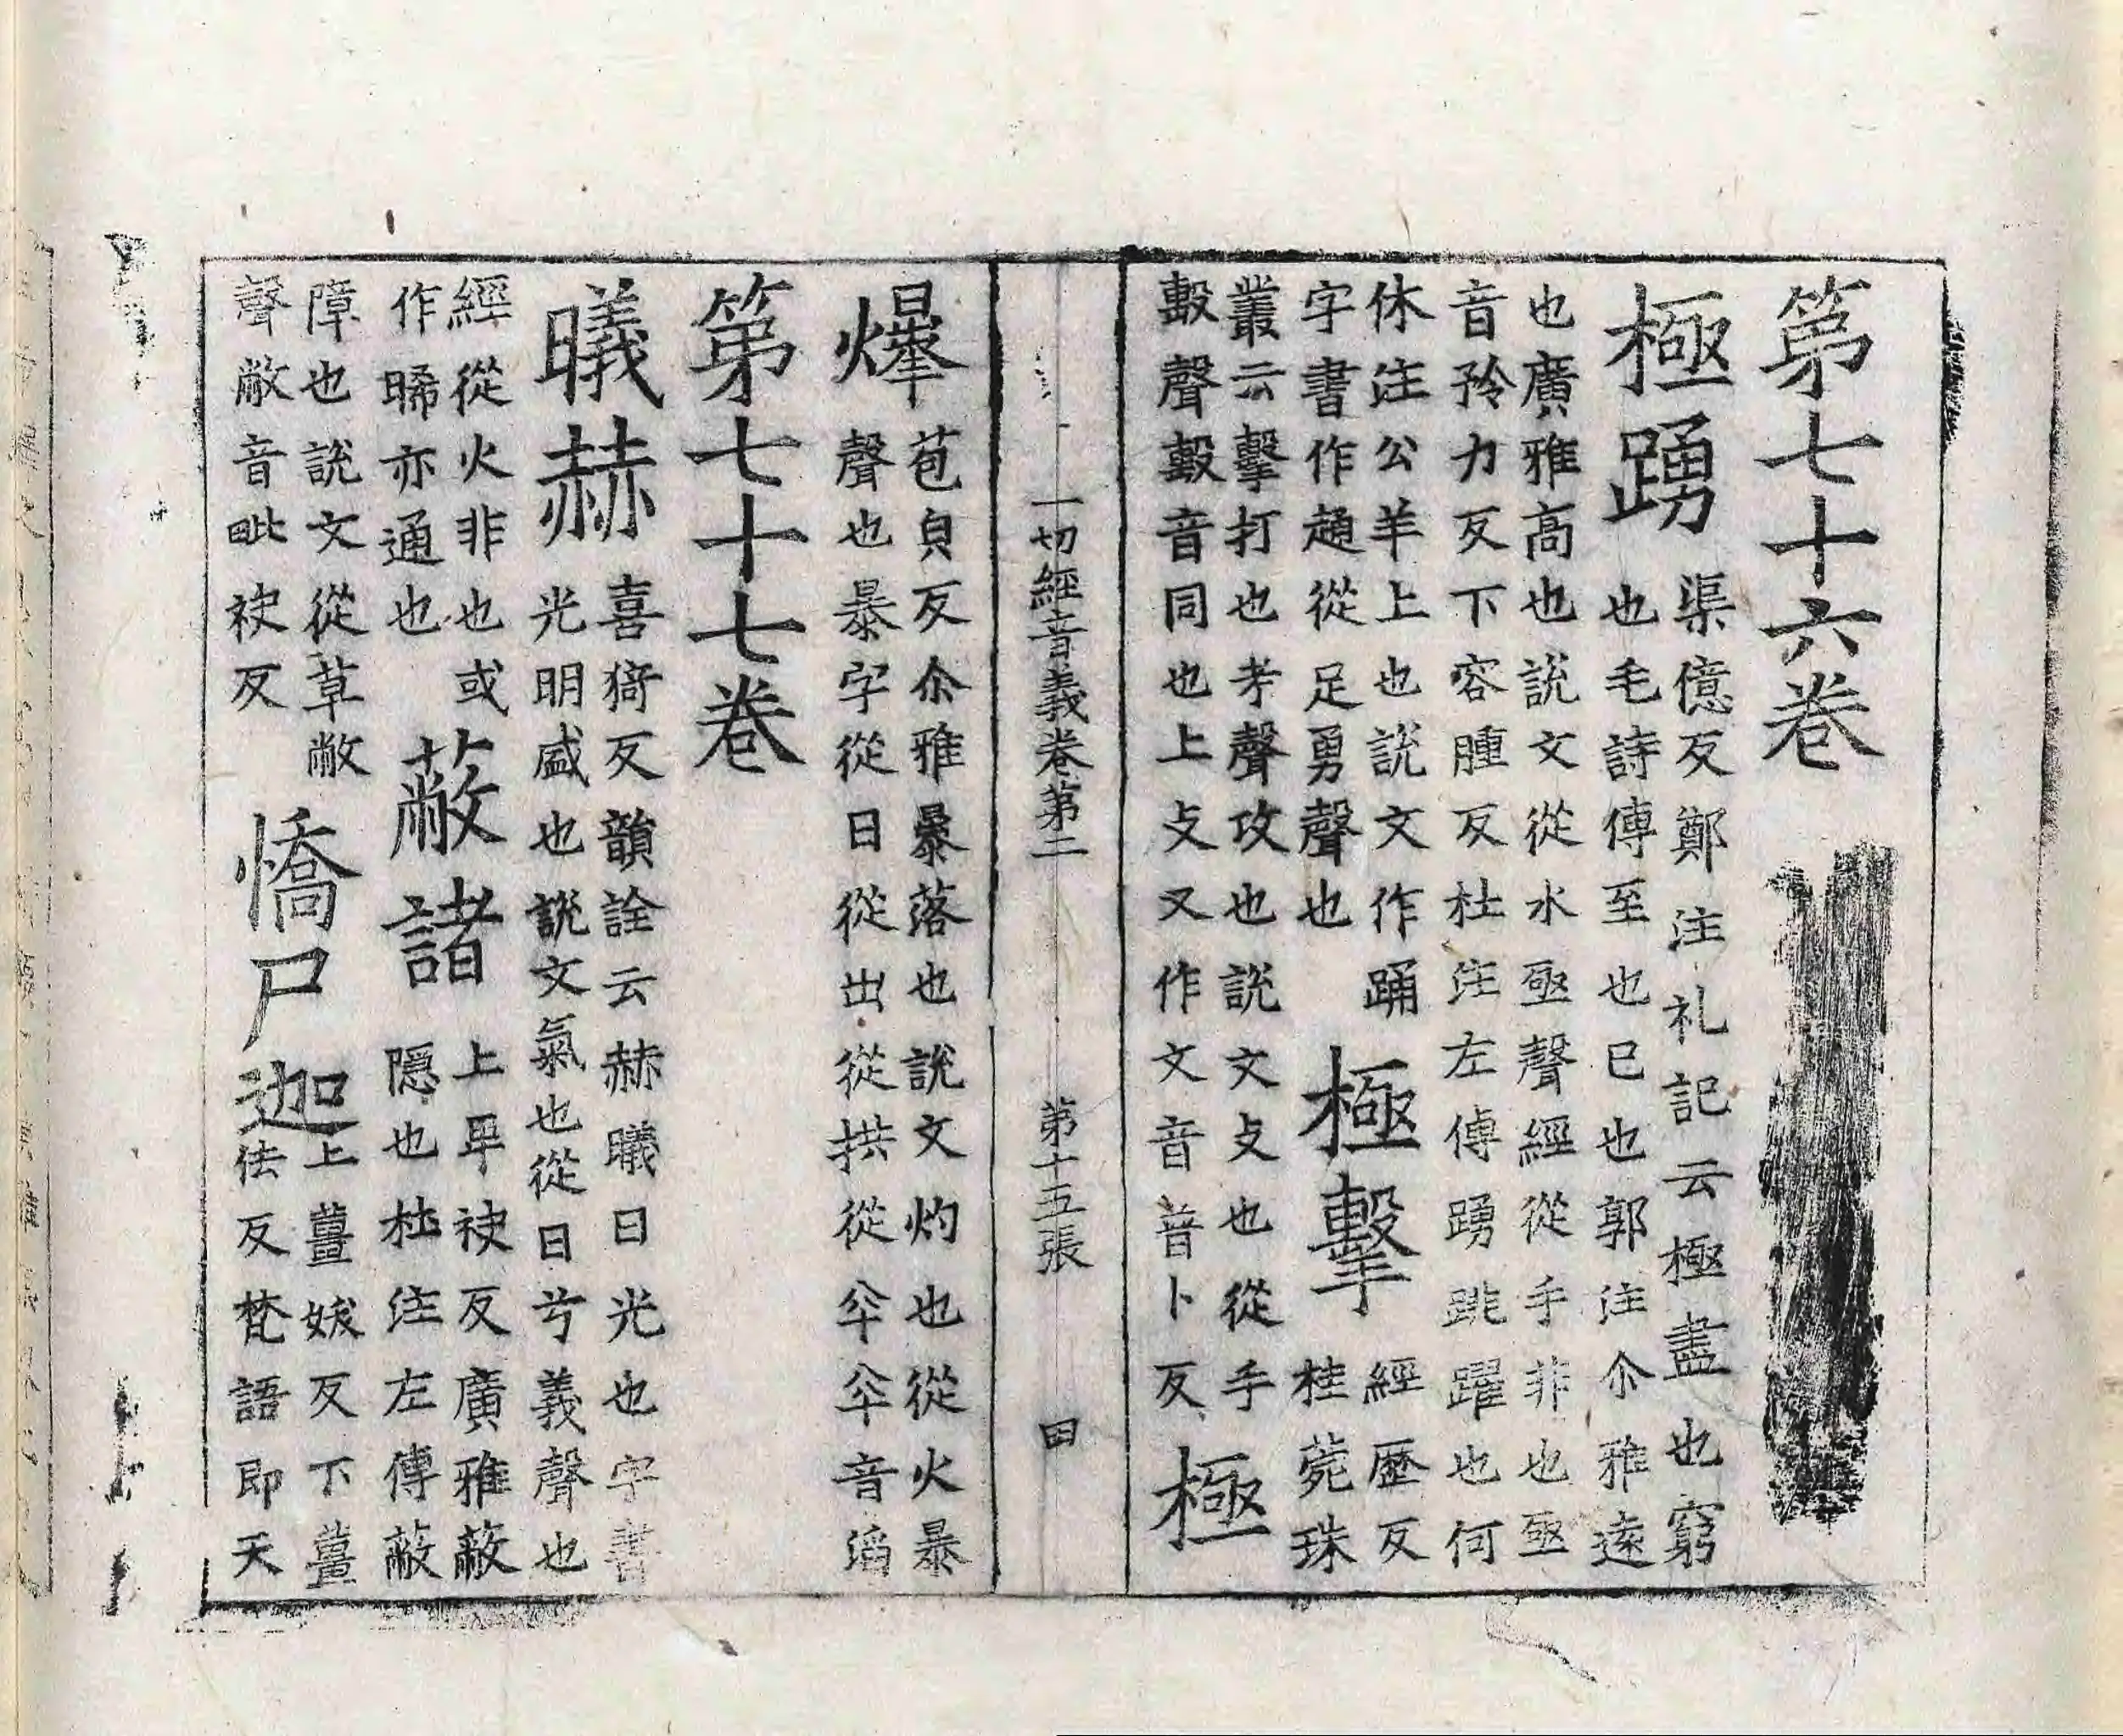 第七十六卷
極踴
渠億反鄭注礼記云極盡也窮
也毛詩傳至也已也郭注尒雅遠
也廣雅高也說文從水亟聲經從手非也亟
音矜力反下容腫反杜注左傳踴跳躍也何
休注公羊上也說文作踊
字書作從足勇聲也
極擊
經歷反
桂菀珠
叢云擊打也考聲攻也說文攴也從手
毄聲毄音同也上攴又作文音普卜反
極
一切經音義卷第二 第十五張 田
爆
苞皃反尒雅暴落也說文灼也從火暴
聲也暴字從日從出從拱從夲夲音滔
第七十七卷
曦赫
喜猗反韻詮云赫曦日光也字書
光明盛也說文氣也從日兮義聲也
經從火非也或
作晞亦通也
蔽諸
上卑袂反廣雅蔽
隱也杜注左傳蔽
障也說文從草敝
聲敝音毗袂反
憍尸迦
上薑妖反下薑
佉反梵語即天